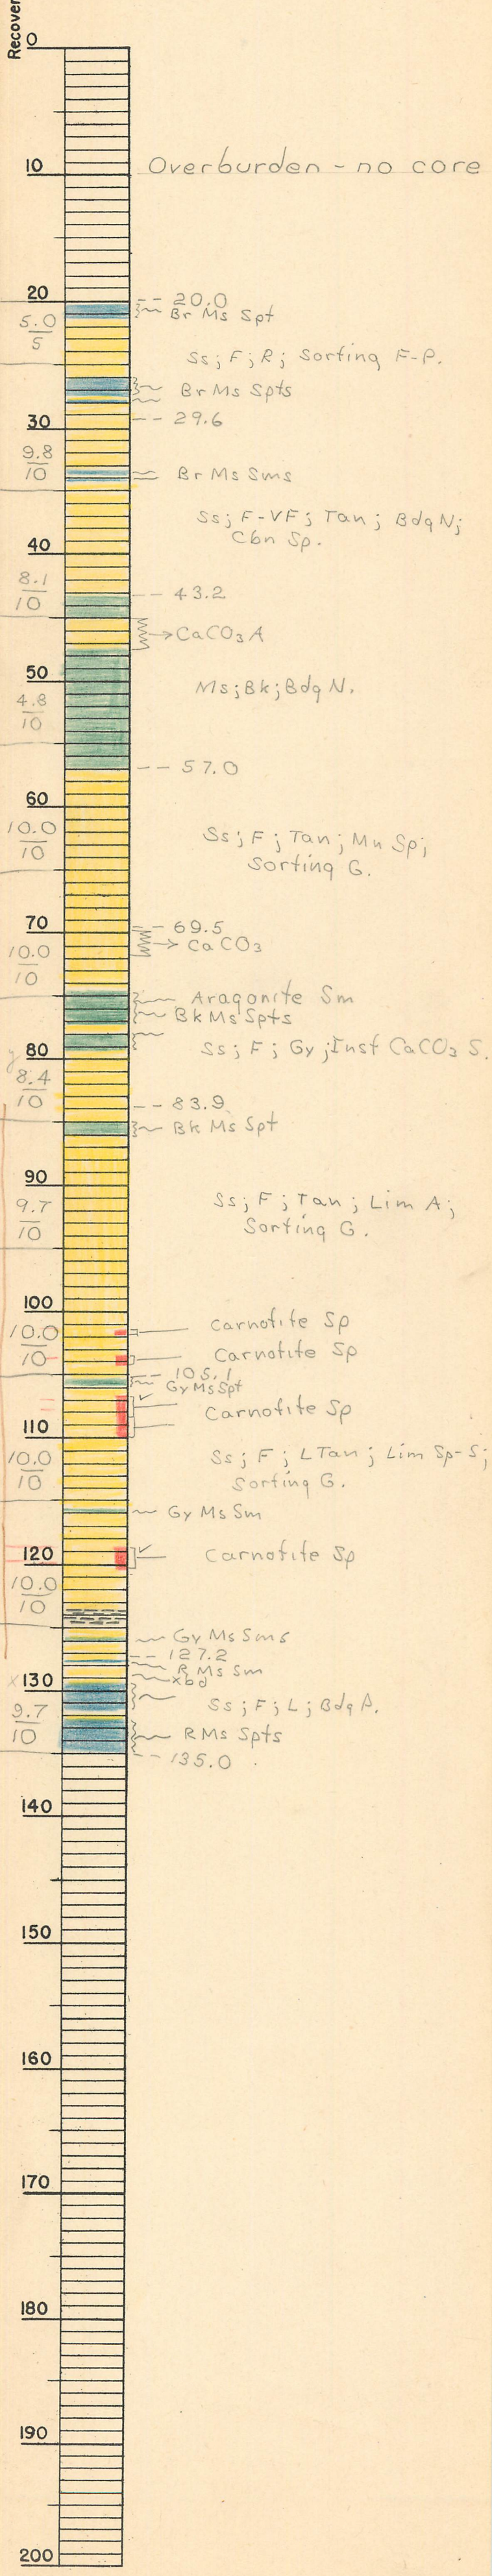 Recover
0
10
Overburden - no core
20
-- 20.0
Br Ms Spt
5.0
5
Ss; F; R; Sorting F-P.
Br Ms Spts
-- 29.6
30
9.8
10
Br Ms Sms
Ss; F-VF; Tan; Bdg N;
Cbn Sp.
40
8.1
10
-- 43.2
CaCO3 A
50
Ms; Bk; Bdg N.
4.8
10
-- 57.0
60
10.0
10
Ss; F; Tan; Mn Sp;
Sorting G.
70
-- 69.5
CaCO3
10.0
10
Aragonite Sm
Bk Ms Spts
Ss; F; Gy; Inst CaCO3 S.
80
8.4
10
-- 83.9
Bk Ms Spt
90
9.7
10
Ss; F; Tan; Lim A;
Sorting G.
100
Carnotite Sp
10.0
10
Carnotite Sp
-- 105.1
Gy Ms Spt
Carnotite Sp
110
10.0
10
Ss; F; L Tan; Lim Sp-S;
Sorting G.
Gy Ms Sm
120
Carnotite Sp
10.0
10
Gy Ms Sms
-- 127.2
R Ms Sm
xbd
x
130
Ss; F; L; Bdg A.
9.7
10
R Ms Spts
-- 135.0
140
150
160
170
180
190
200